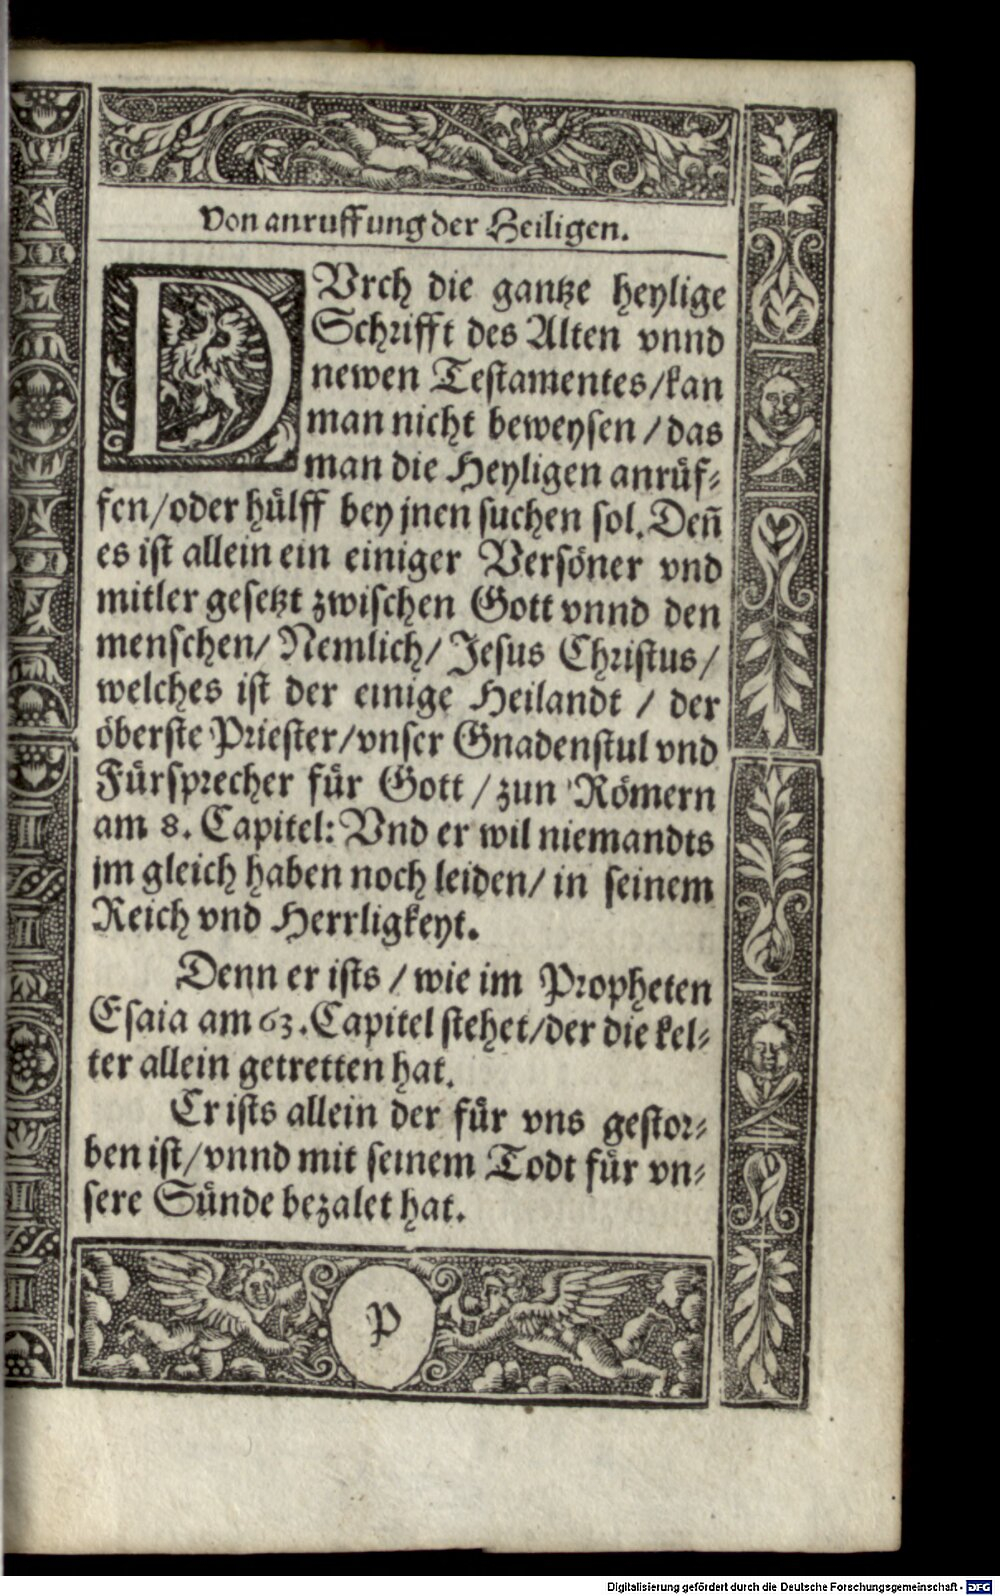 Von anruffung der Heiligen.
DVrch die gantze heylige
Schrifft des Alten vnnd
newen Testamentes/kan
man nicht beweysen/das
man die Heyligen anrüf⸗
fen/oder hülff bey jnen suchen sol. Deñ
es ist allein ein einiger Versöner vnd
mitler gesetzt zwischen Gott vnnd den
menschen/ Nemlich/ Jesus Christus/
welches ist der einige Heilandt / der
öberste Priester/vnser Gnadenstul vnd
Fürsprecher für Gott / zun Römern
am 8. Capitel: Vnd er wil niemandts
jm gleich haben noch leiden/ in seinem
Reich vnd Herrligkeyt.
Denn er ists / wie im Propheten
Esaia am 63. Capitel stehet/der die kel⸗
ter allein getretten hat.
Er ists allein der für vns gestor⸗
ben ist/vnnd mit seinem Todt für vn⸗
sere Sünde bezalet hat.
P
Digitalisierung gefördert durch die Deutsche Forschungsgemeinschaft - DFG